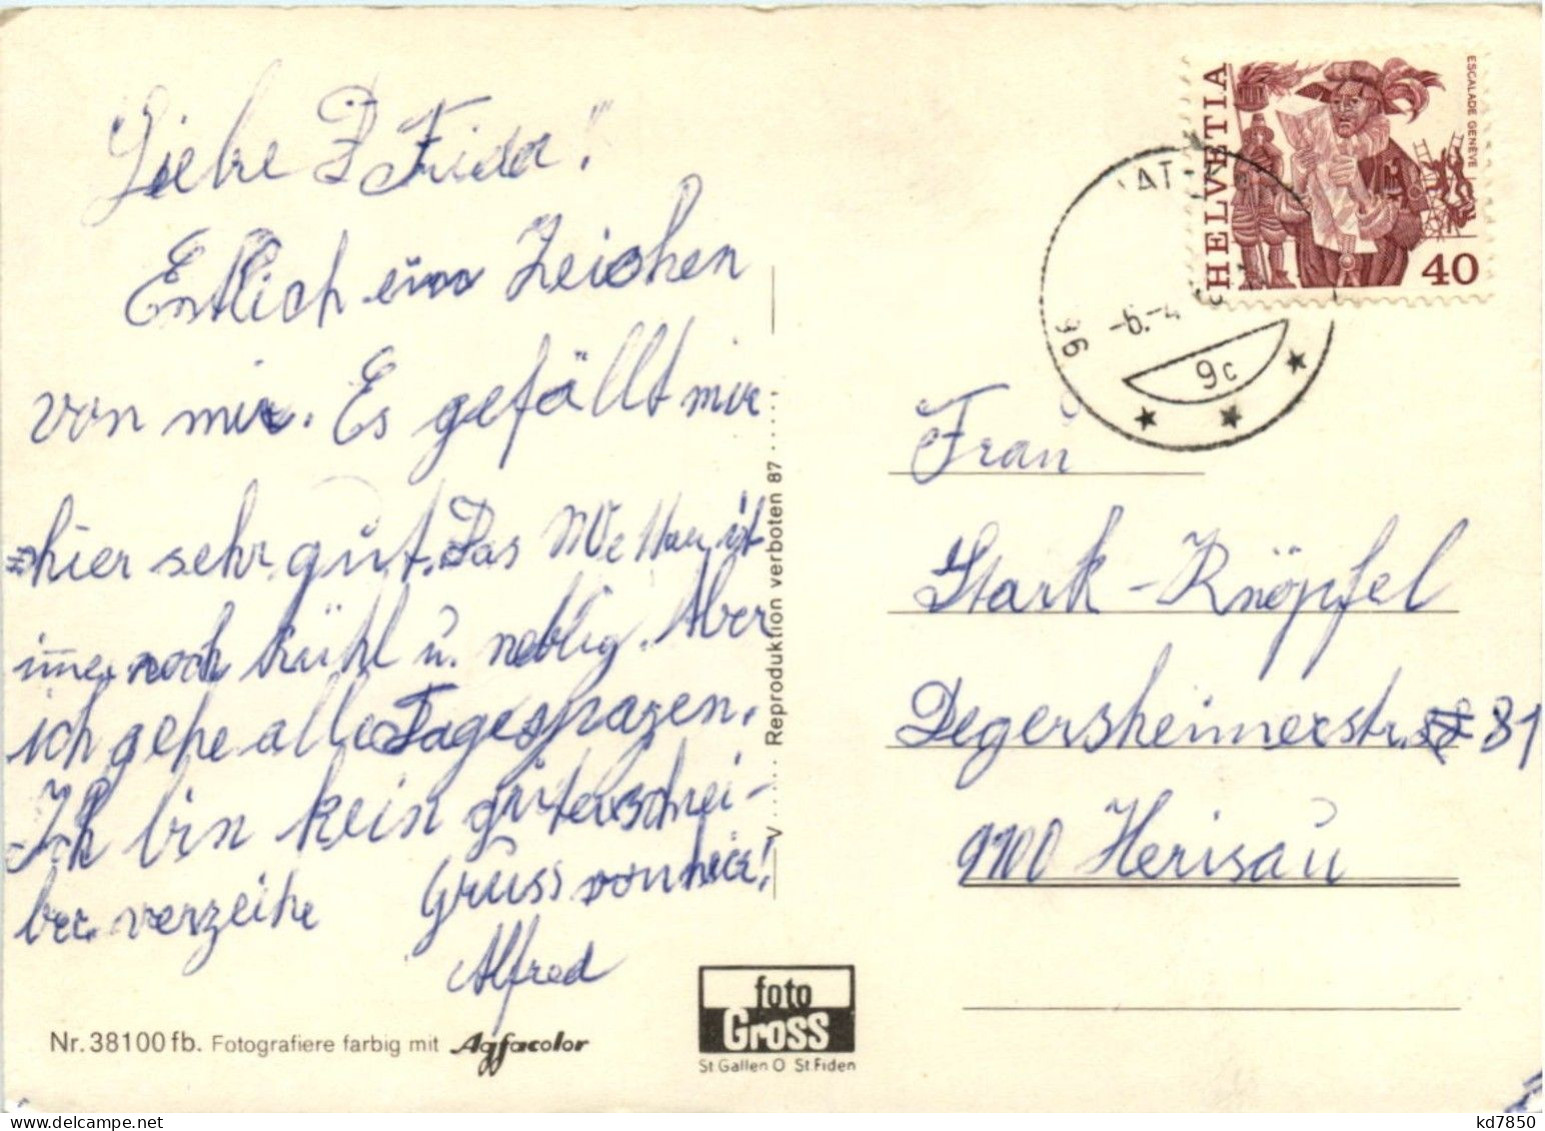 Liebe Frieda!
Entlich ein Zeichen
von mir. Es gefällt mir
hier sehr gut. Das Wetter ist
immer noch kühl u. neblig. Aber
ich gehe alle Tage spazen.
Ich bin kein guterschrei-
ber. verzeihe Gruss von hier!
Alfred
Nr. 38100 fb. Fotografiere farbig mit Agfacolor
V ..... Reproduktion verboten 87 .....
foto
Gross
St. Gallen O St. Fiden
HELVETIA
ESCALADE GENÈVE
40
96
-6.-4
9c
Frau
Stark-Knöpfel
Degersheimerstr. 81
9100 Herisau
kd7850